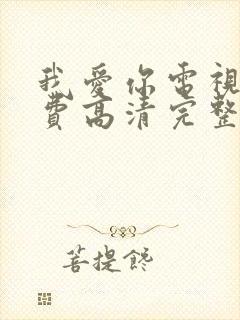 我愛你電視
費高清完整
菩提饞